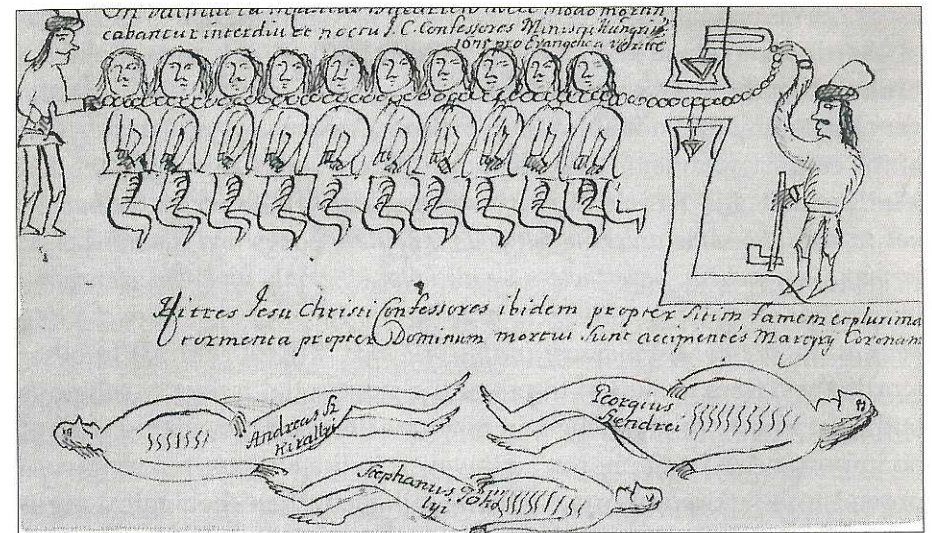 cabantur interdiu et noctu J. C. Confessores Ministri Hungri
ions pro Evangelica veritate
Hi tres Jesu Christi Confessores ibidem propter sitim famem et plurima
tormenta propter Dominum mortui sunt accipientes Martyry Coronam
Andreas Sz
kirallyi
Georgius
Szendrei
Stephanus
lyi